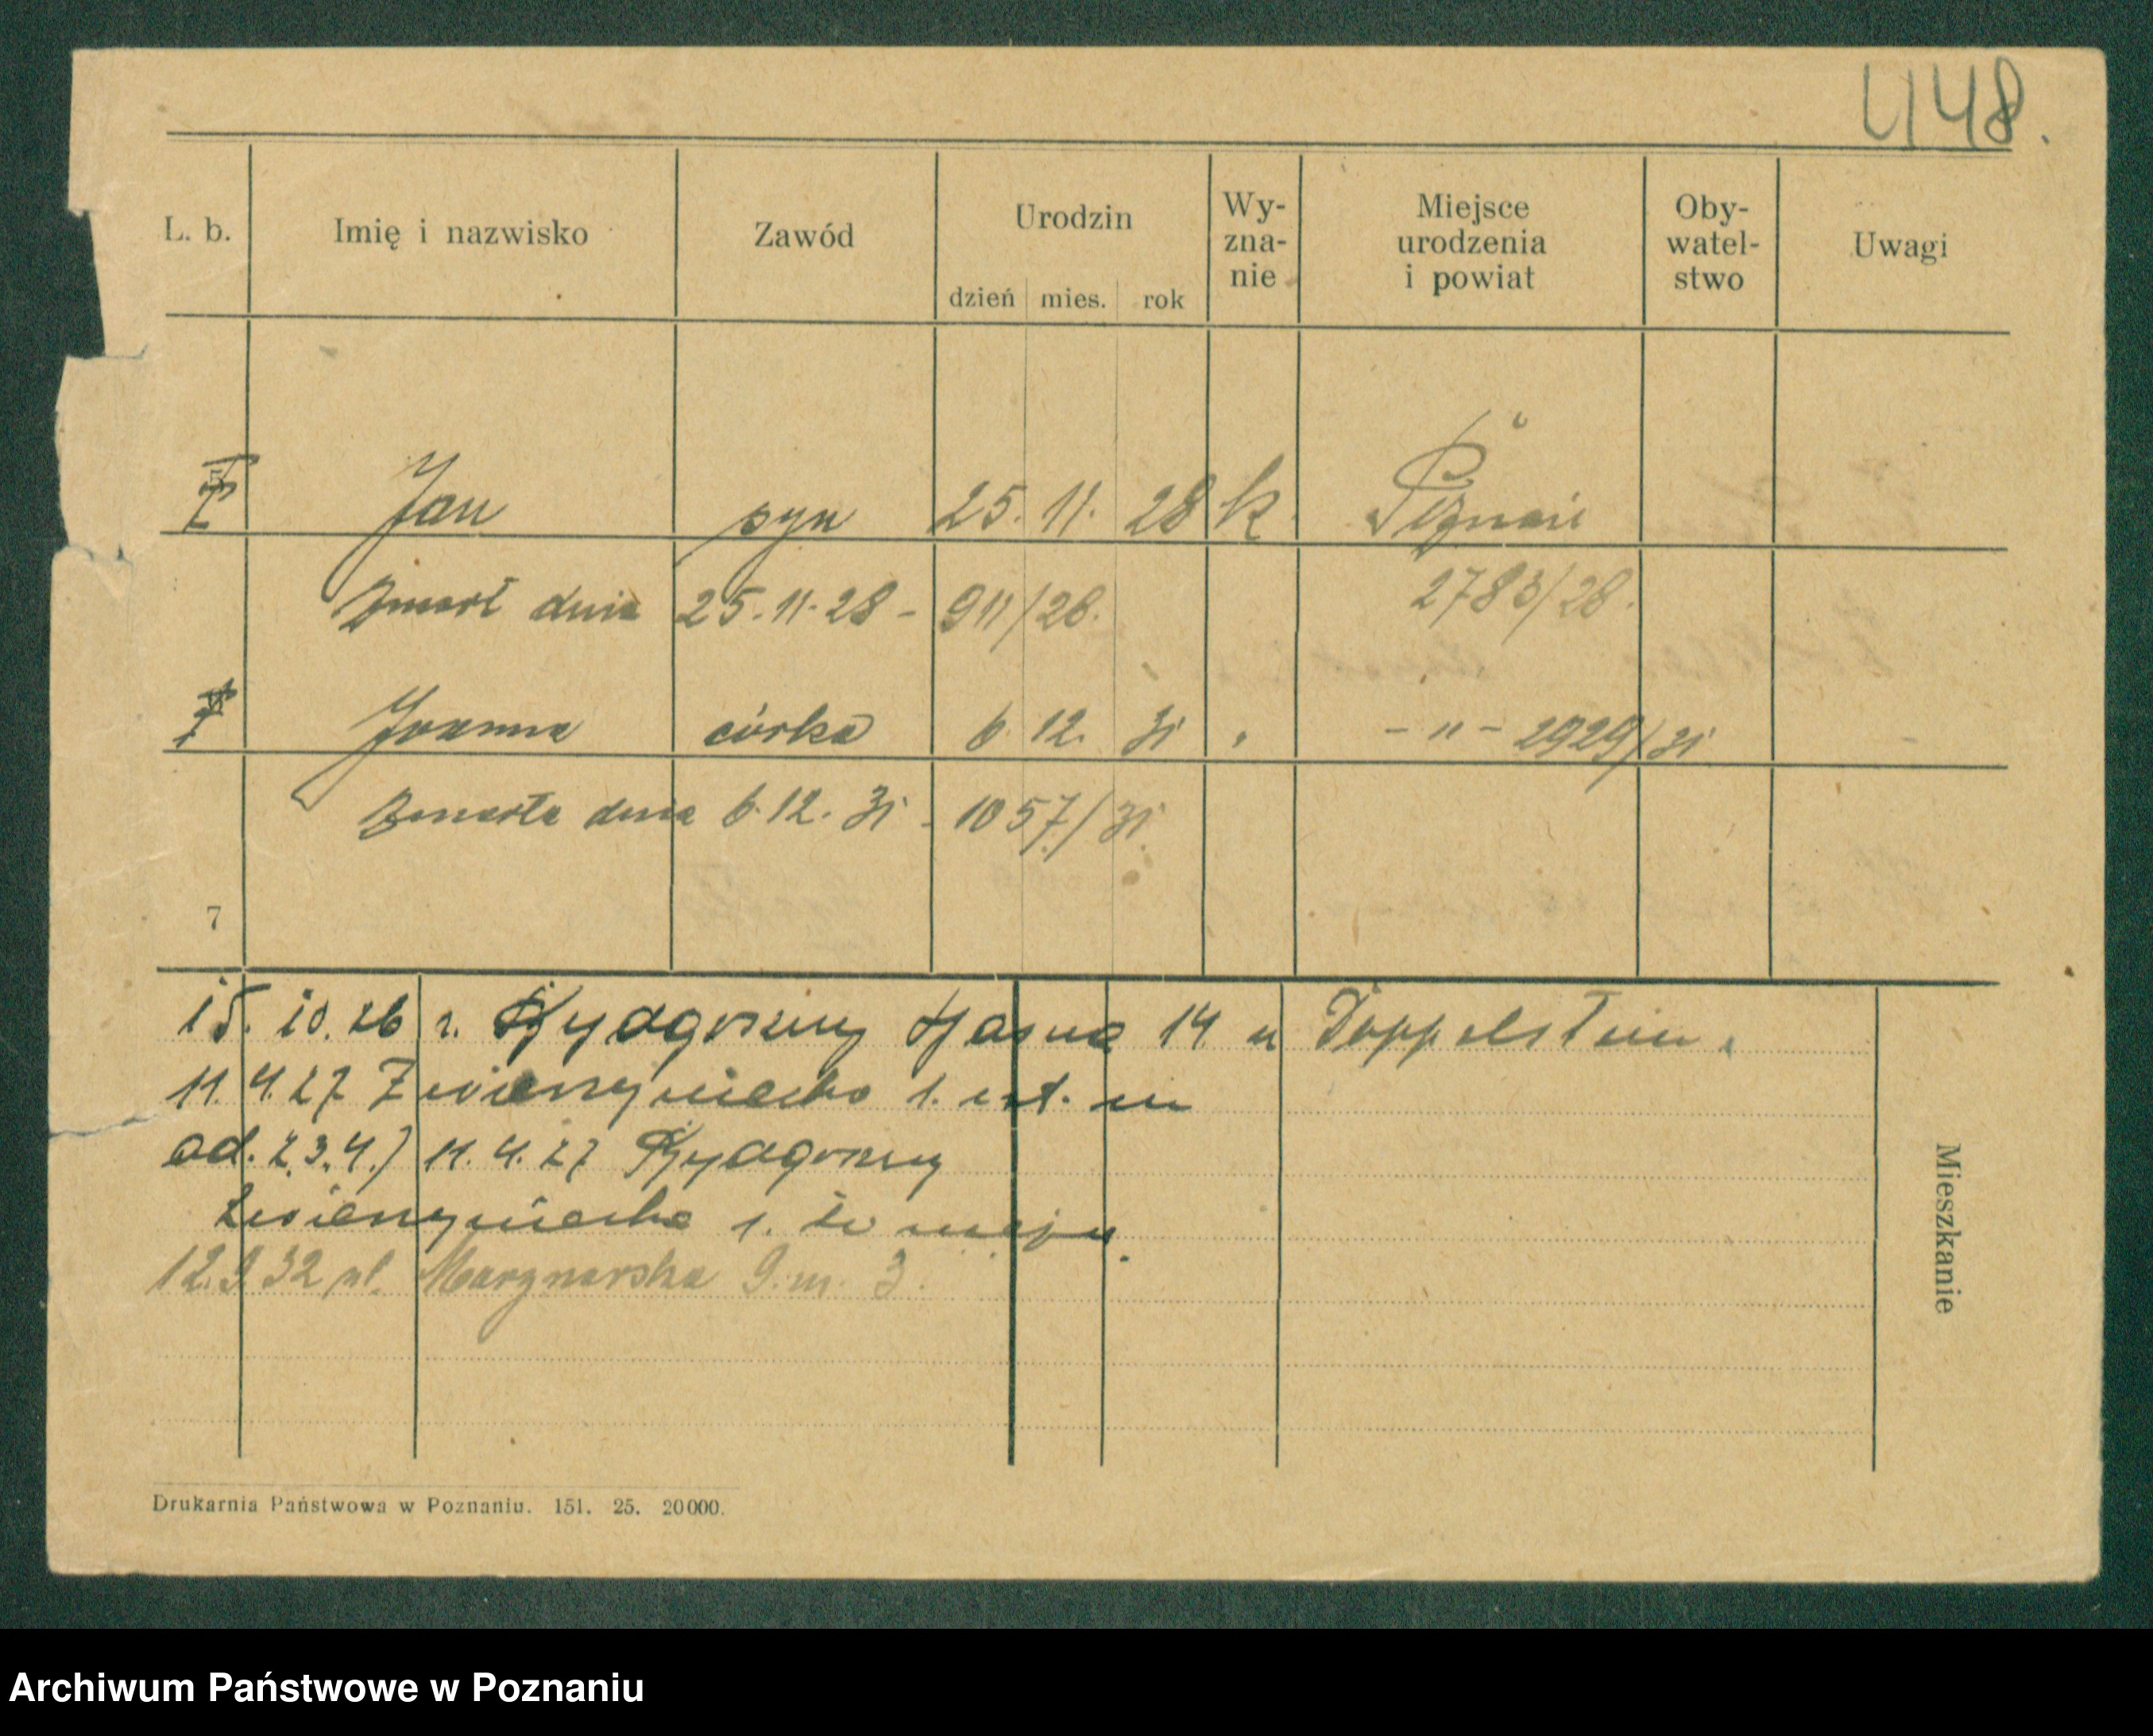 448.
L. b. Imię i nazwisko Zawód Urodzin Wy-zna-nie Miejsce urodzenia i powiat Oby-watel-stwo Uwagi
dzień mies. rok
Jan syn 25. 11. 28 k Poznań
Zmarł dnia 25.11.28 - 911/28. 2783/28.
Joanna córka 6 12. 31 " - " - 2929/31
Zmarła dnia 6.12.31 - 1057/31.
7
15. 10. 26 z. Bydgoszczy 14 u Doppelstein.
11. 4. 27 Zwierzyniecka 1.
od. 2. 3. 4.) 11. 4. 27 Bydgoszczy
Zwierzyniecka 1.
12. 9. 32 ul. Marynarska 9. m. 3.
Mieszkanie
Drukarnia Państwowa w Poznaniu. 151. 25. 20000.
Archiwum Państwowe w Poznaniu